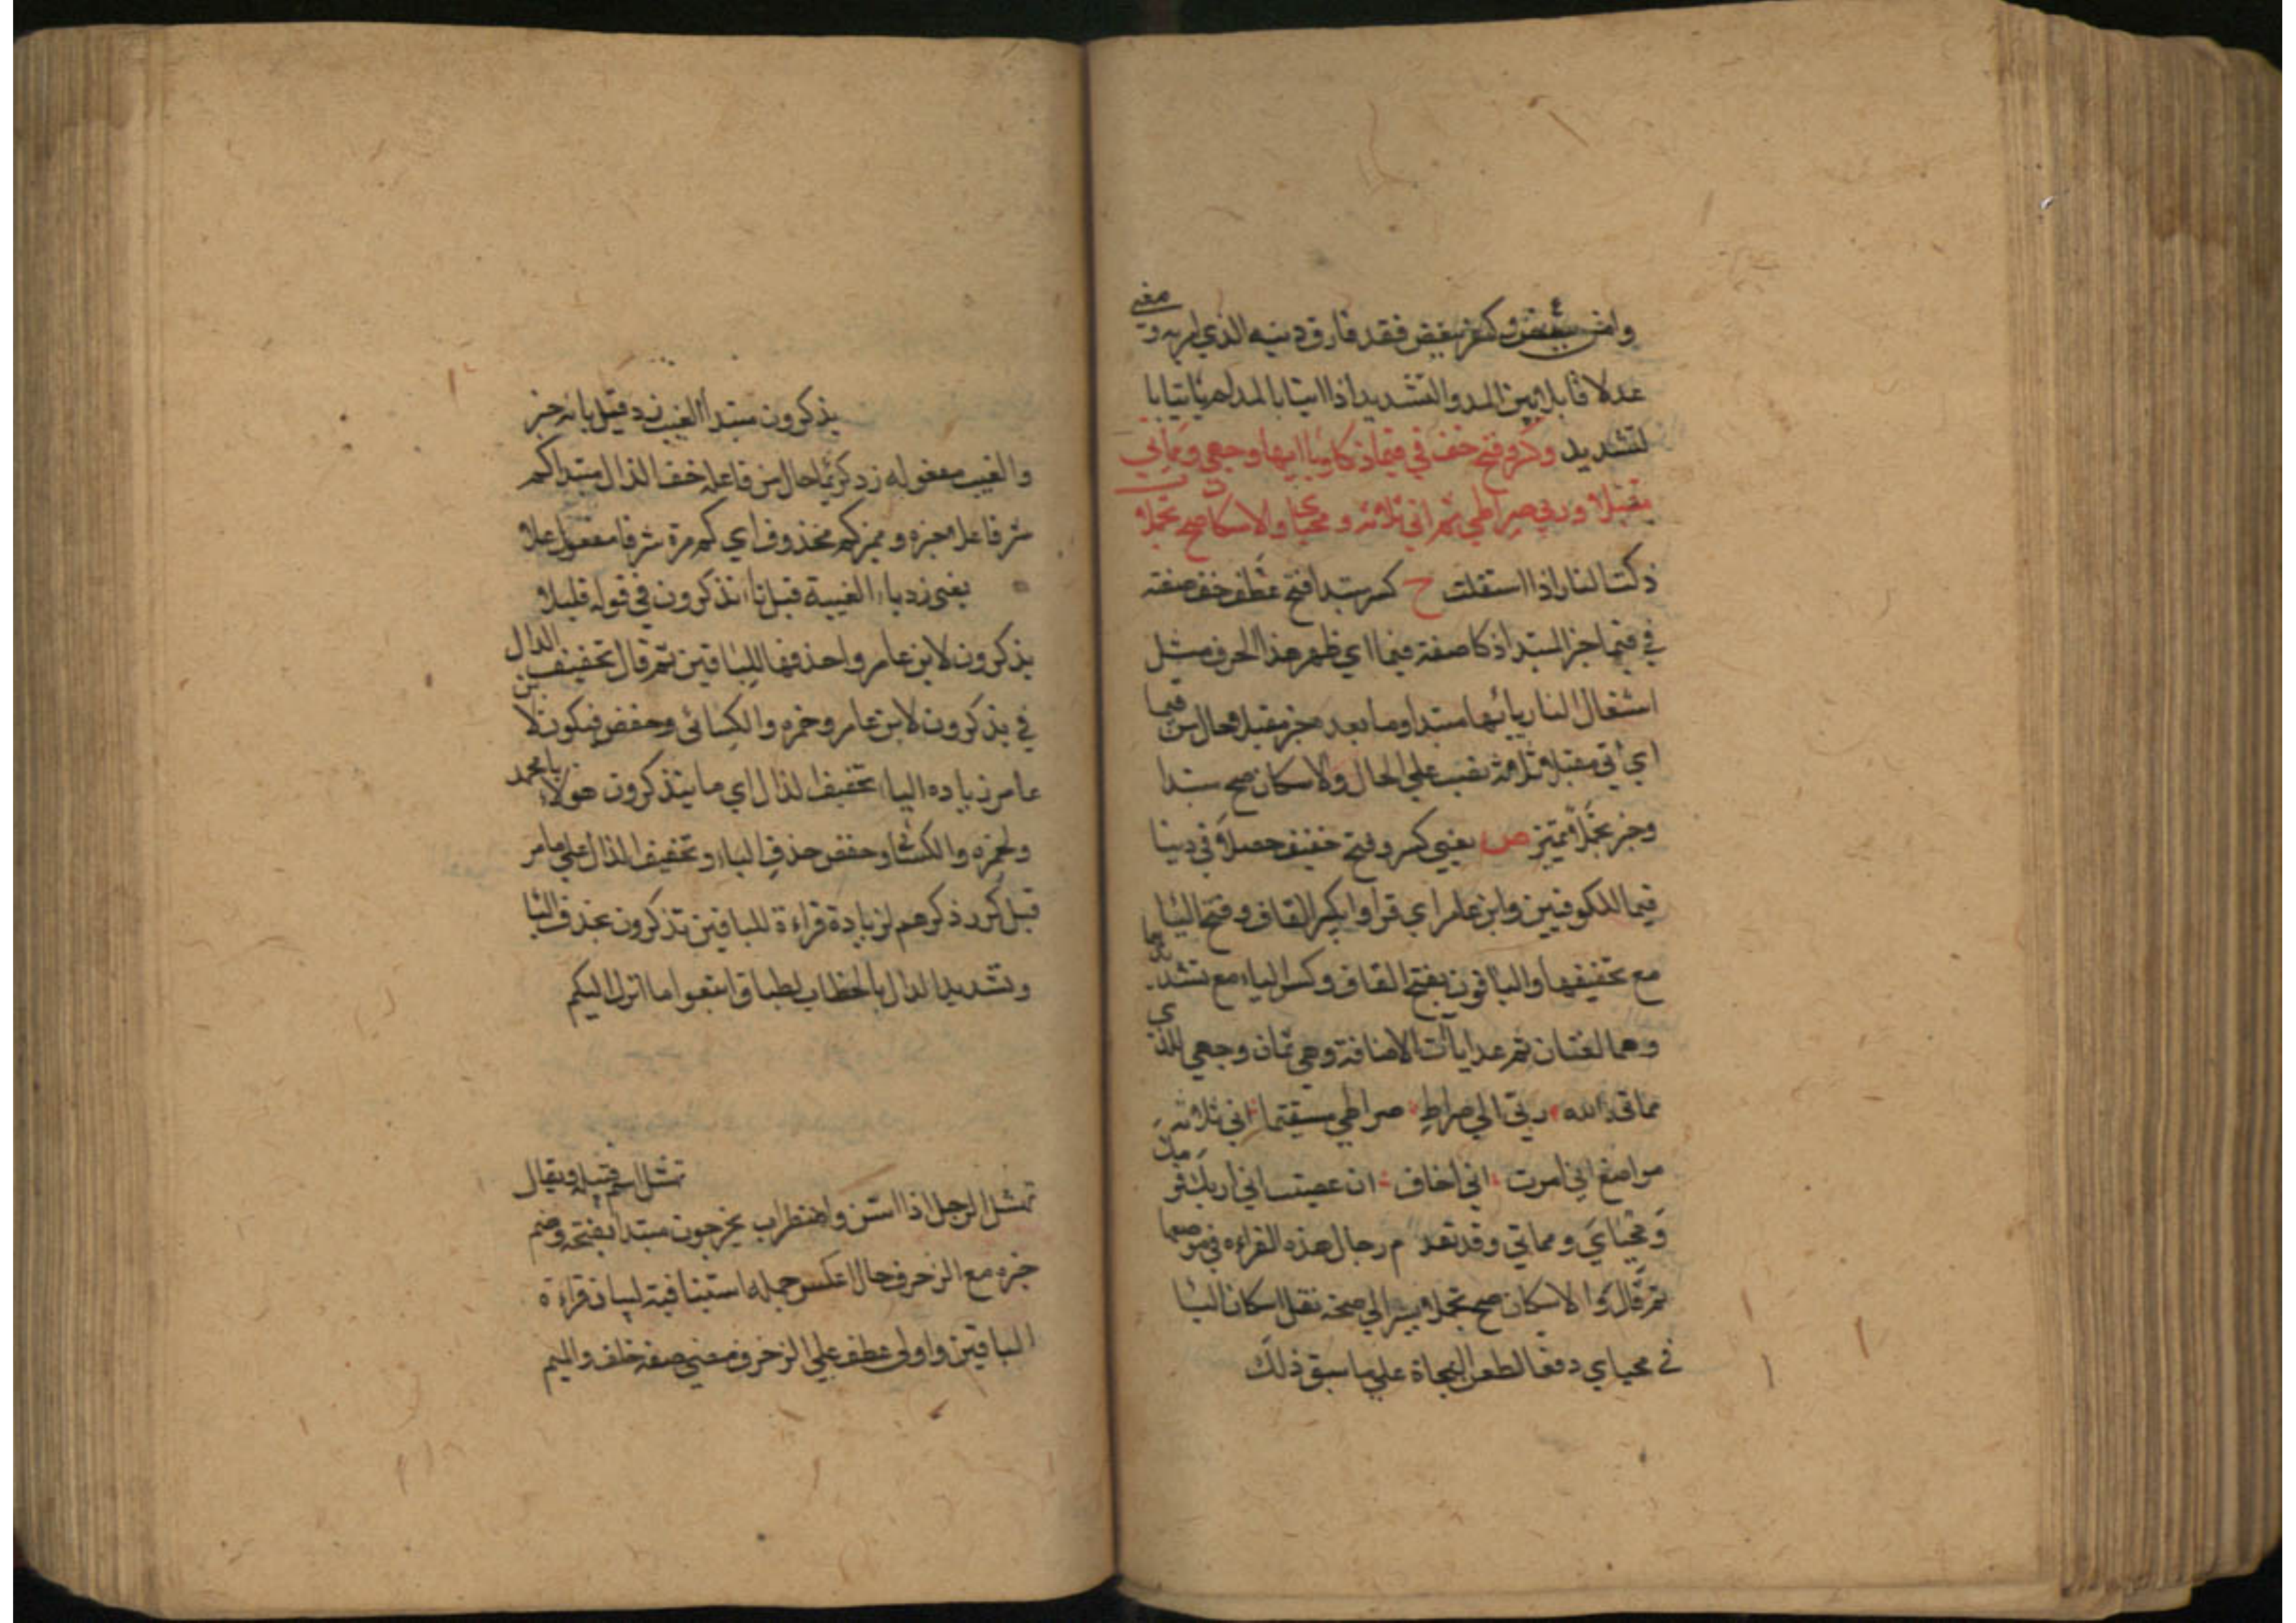 وامن ببعض وكفر ببعض فقد فارق دينه الذي امر به و معنى
عدلا قابل بين المد والتشديد اذا اتيا بالمد لا هما تيا با
لتشديد وكسر وفتح خف في قيما ذكا ويا اتها وجهي ومماتي
مقبلا وربي صراطي ثم اني ثلاثة ومحياي والاسكان صح تحملا
ذكت النار اذا استقلت ح كسر مبتدا فتح عطف خف صفته
في قيما خبر المبتدا ذكا صفة قيما اي ظهر هذا الحرف مثل
اشتعال النار يائتها مبتدا وما بعد خبر مقبلا حال من قيما
اي اتى مقبلا ثلاثة نصب على الحال والاسكان صح مبتدا
وخبر تحملا تمييز ص يعني كسر وفتح خفيف حصلا في دينا
قيما للكوفيين وابن عامر اي قراوا بكسر القاف وفتح اليا
مع تخفيفها والباقون بفتح القاف وكسر الياء مع تشديدها
وهما لغتان ثم عد ياات الاضافة وهي ثمان وجهي للذي
مماتي لله ربي الي صراط صراطي مستقيما اني ثلاثة
مواضع اني امرت اني اخاف ان عصيت اني اريك
ومحياي ومماتي وقد تقدم رجال هذه القراءه في مواضعها
ثم قال والاسكان صح تحملا يشير الي صحة نقل اسكان اليا
في محياي دفعا لطعن النحاة علي ما سبق ذلك
يذكرون مبتدا الغيب زد قيل بانه خبر
والغيب مفعول له زد كريما حال من فاعله خف الذال مبتدا كم
شرفا علا خبره ومميز كم محذوف اي كم مرة شرفا مفعول علا
يعني زد ياء الغيبة قبل تاء تذكرون في قوله قليلا
يذكرون لابن عامر واحذفها للباقين ثم قال تخفيف الذال
في يذكرون لابن عامر وحمزه والكسائي وحفص فيكون لابن
عامر زياده الياء تخفيف الذال اي ما يتذكرون هولاء يا محمد
ولحمزه والكسائي وحفص حذف الياء وتخفيف الذال علي ما مر
قبل كرر ذكرهم لزيادة قراءة للباقين تذكرون بحذف اليا
وتشديد الذال بالخطاب ليطابق اتبعوا ما انزل اليكم
تمثل الرجل اذا استن واضطراب يخرجون مبتدا بفتحه وضم
خبره مع الزخرف حال اعكس جمله استينافية لبيان قراءة
الباقين واولى عطف علي الزخرف ومعني صفه خلف والميم